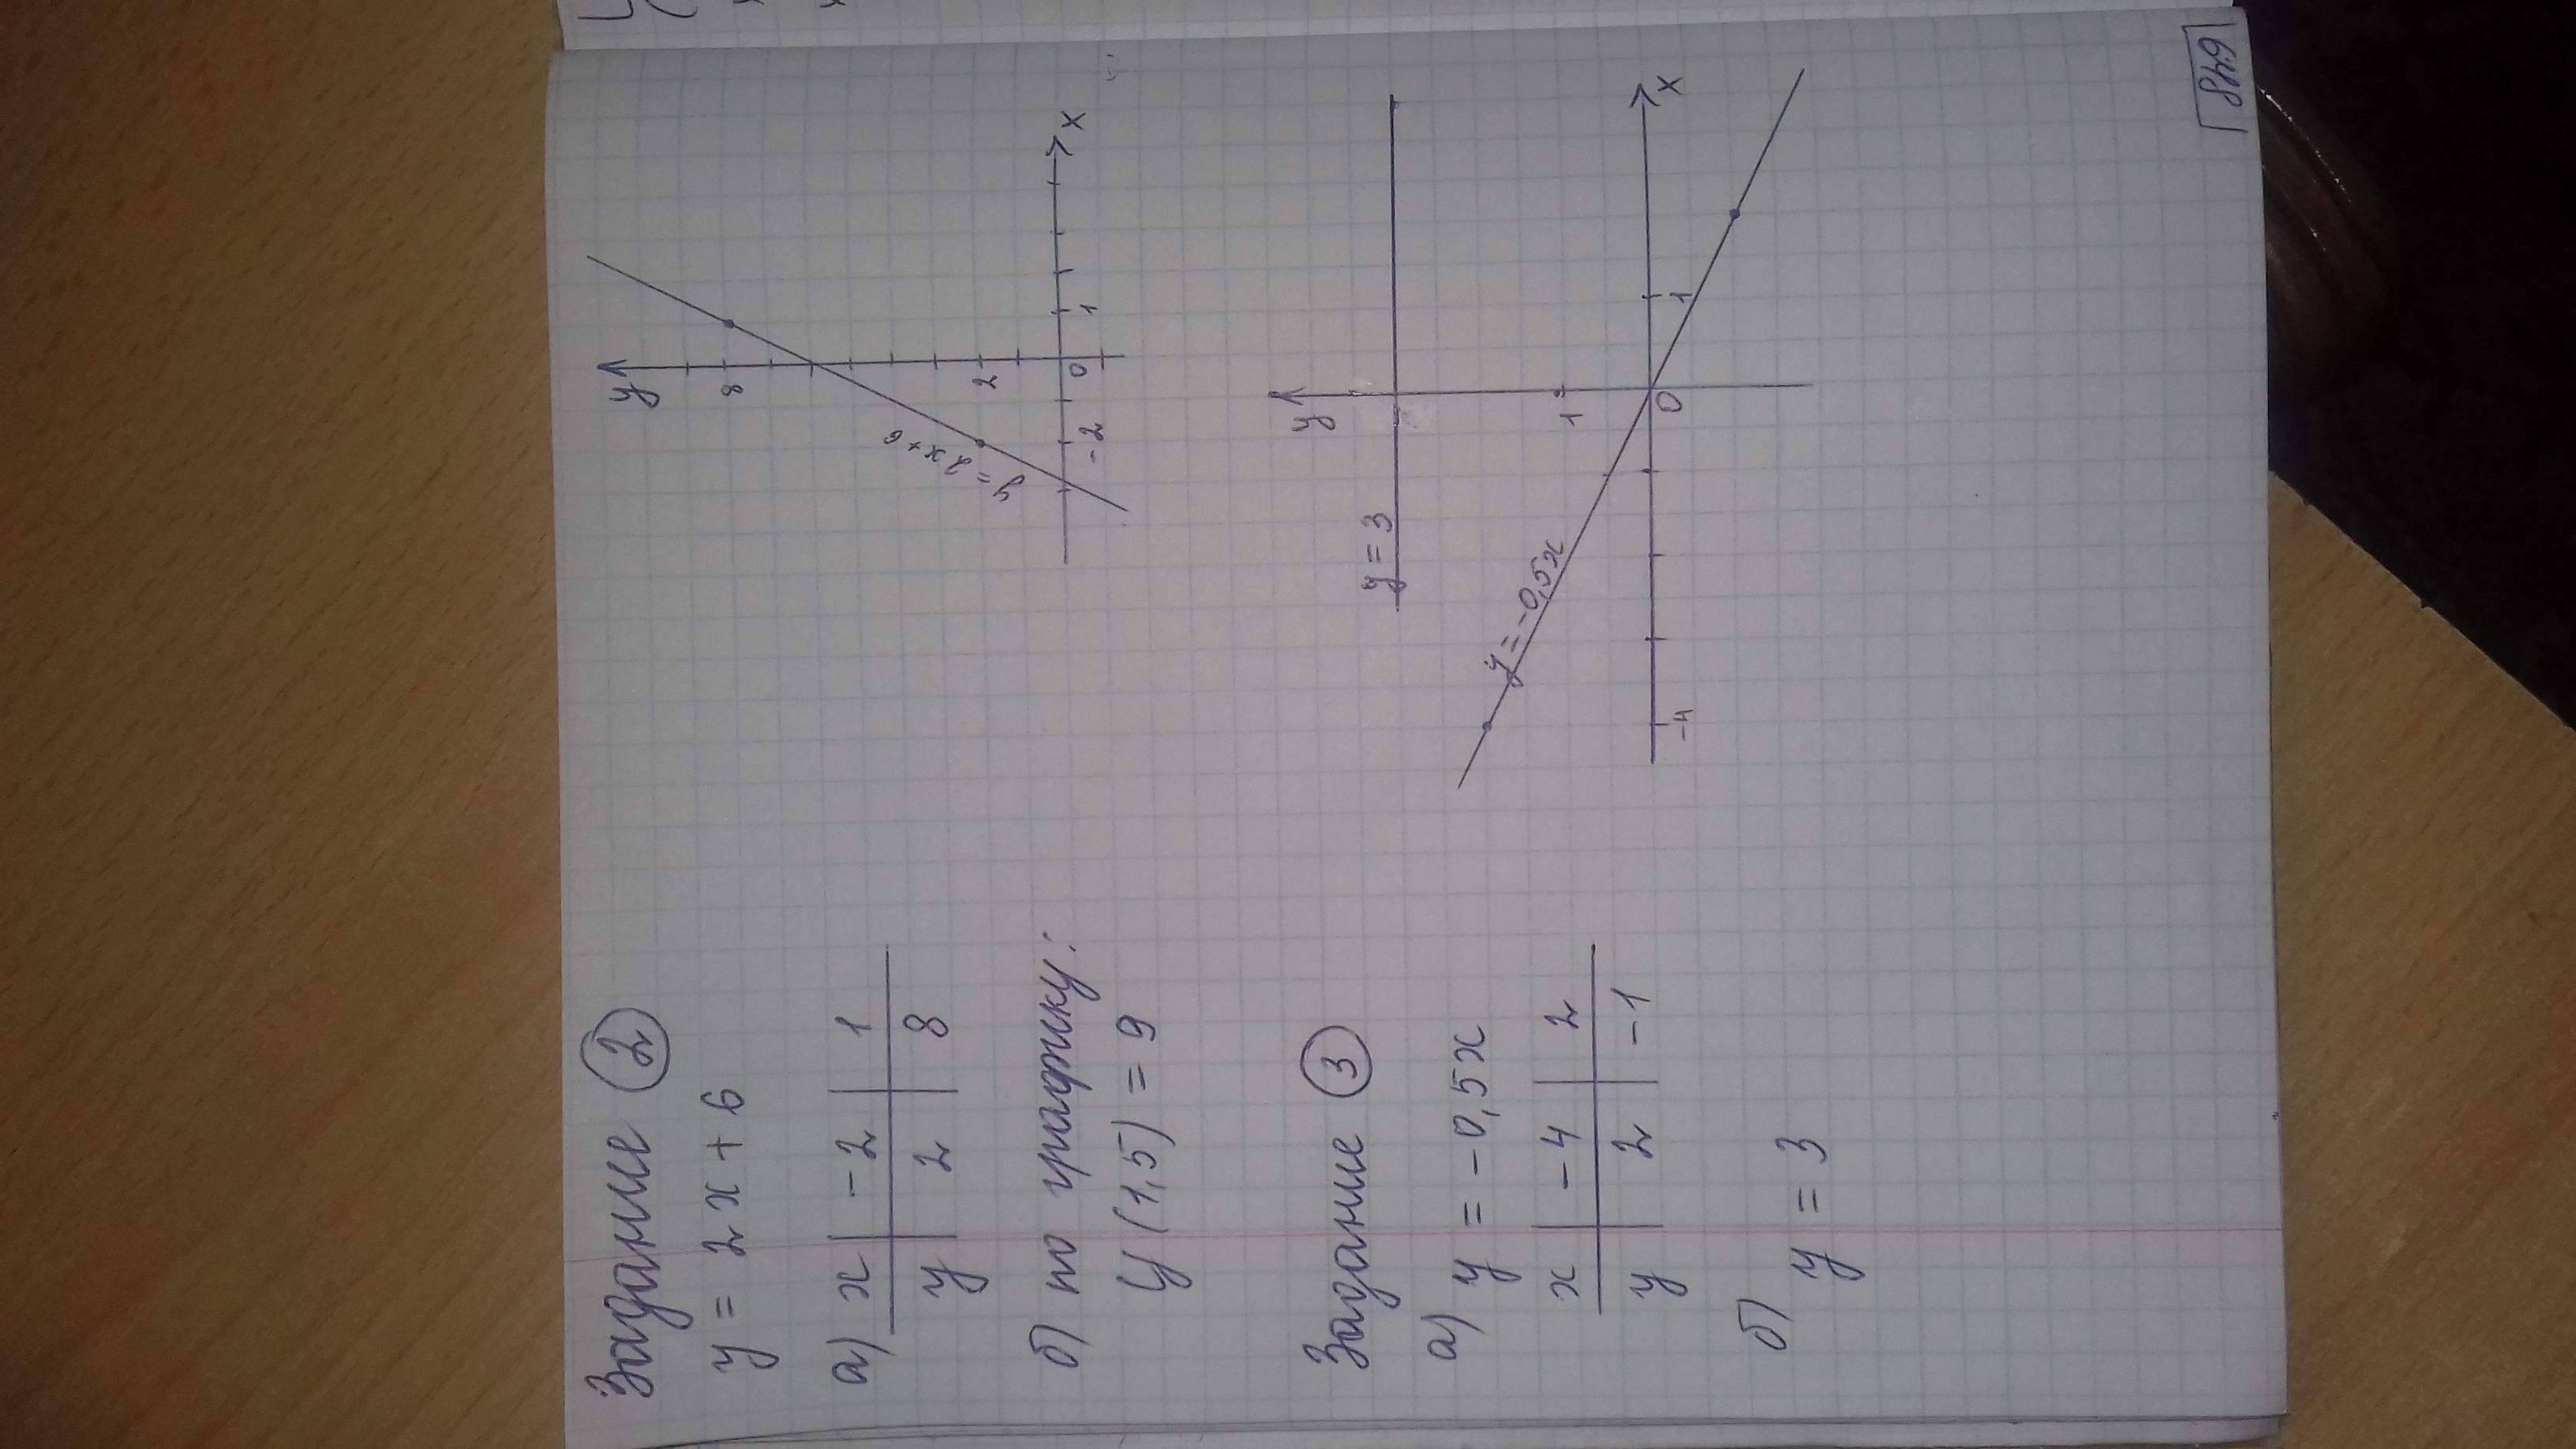 Задание 2
y = 2x + 6
а) x | -2 | 1
y | 2 | 8
б) по графику:
y(1,5) = 9
y
8
2
0
1
-2
x
y = 2x + 6
Задание 3
а) y = -0,5x
x | -4 | 2
y | 2 | -1
б) y = 3
y
y = 3
1
y = -0,5x
-4
0
1
x
648